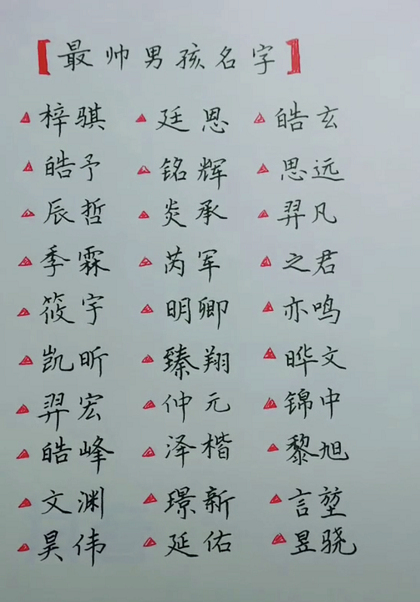 【最帅男孩名字】
梓骐 廷恩 皓玄
皓予 铭辉 思远
辰哲 炎承 羿凡
季霖 芮军 之君
筱宇 明卿 亦鸣
凯昕 臻翔 晔文
羿宏 仲元 锦中
皓峰 泽楷 黎旭
文渊 璟新 言堃
昊伟 延佑 昱骁